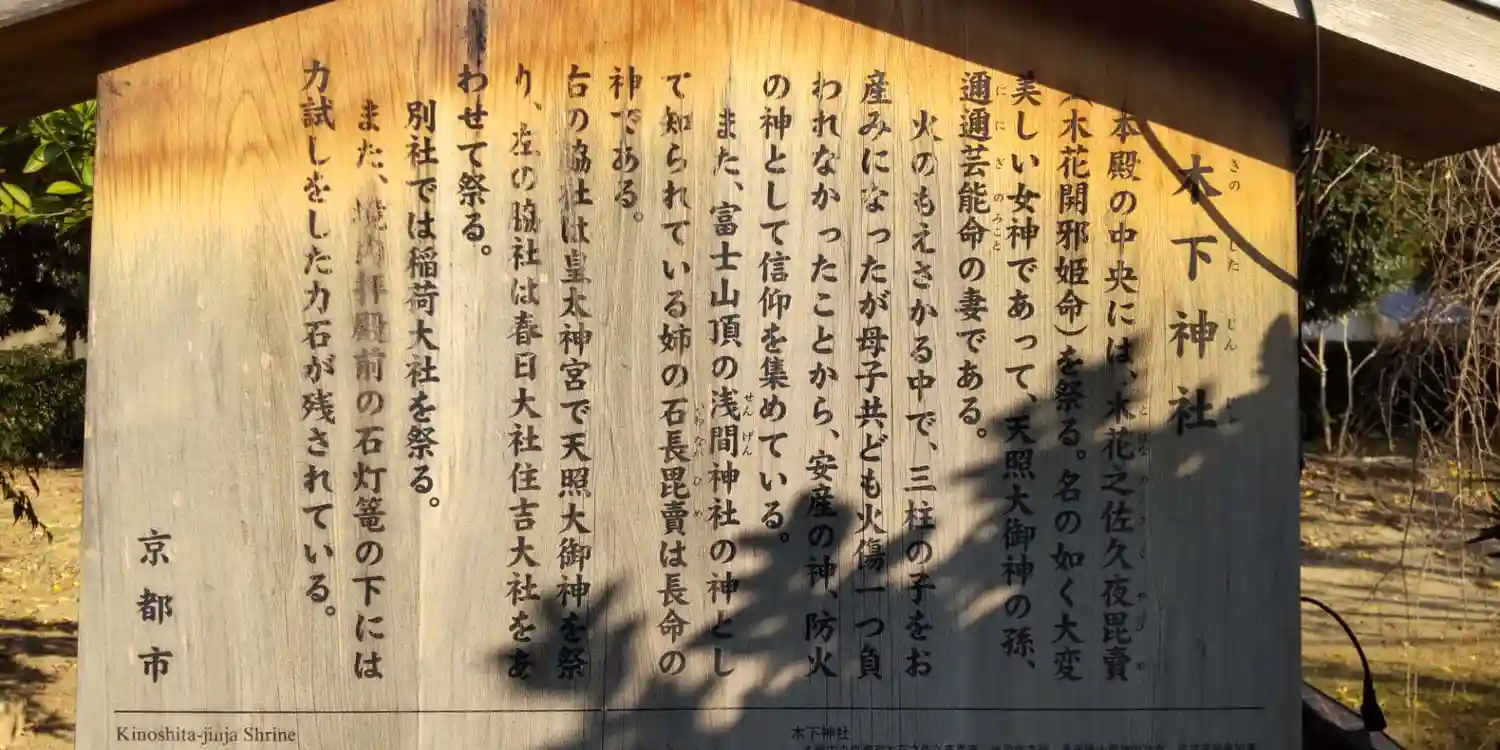 木下神社
きのしたじんじゃ
本殿の中央には、木花之佐久夜毘賣
とはなのさくやびめ
(木花開邪姫命)を祭る。名の如く大変
美しい女神であって、天照大御神の孫、
邇邇芸能命の妻である。
ににぎのみこと
火のもえさかる中で、三柱の子をお
産みになったが母子共ども火傷一つ負
われなかったことから、安産の神、防火
の神として信仰を集めている。
また、富士山頂の浅間神社の神とし
せんげん
て知られている姉の石長毘賣は長命の
いわながひめ
神である。
右の脇社は皇太神宮で天照大御神を祭
り、左の脇社は春日大社住吉大社をあ
わせて祭る。
別社では稲荷大社を祭る。
また、境内拝殿前の石灯篭の下には
力試しをした力石が残されている。
京都市
Kinoshita-jinja Shrine
木下神社